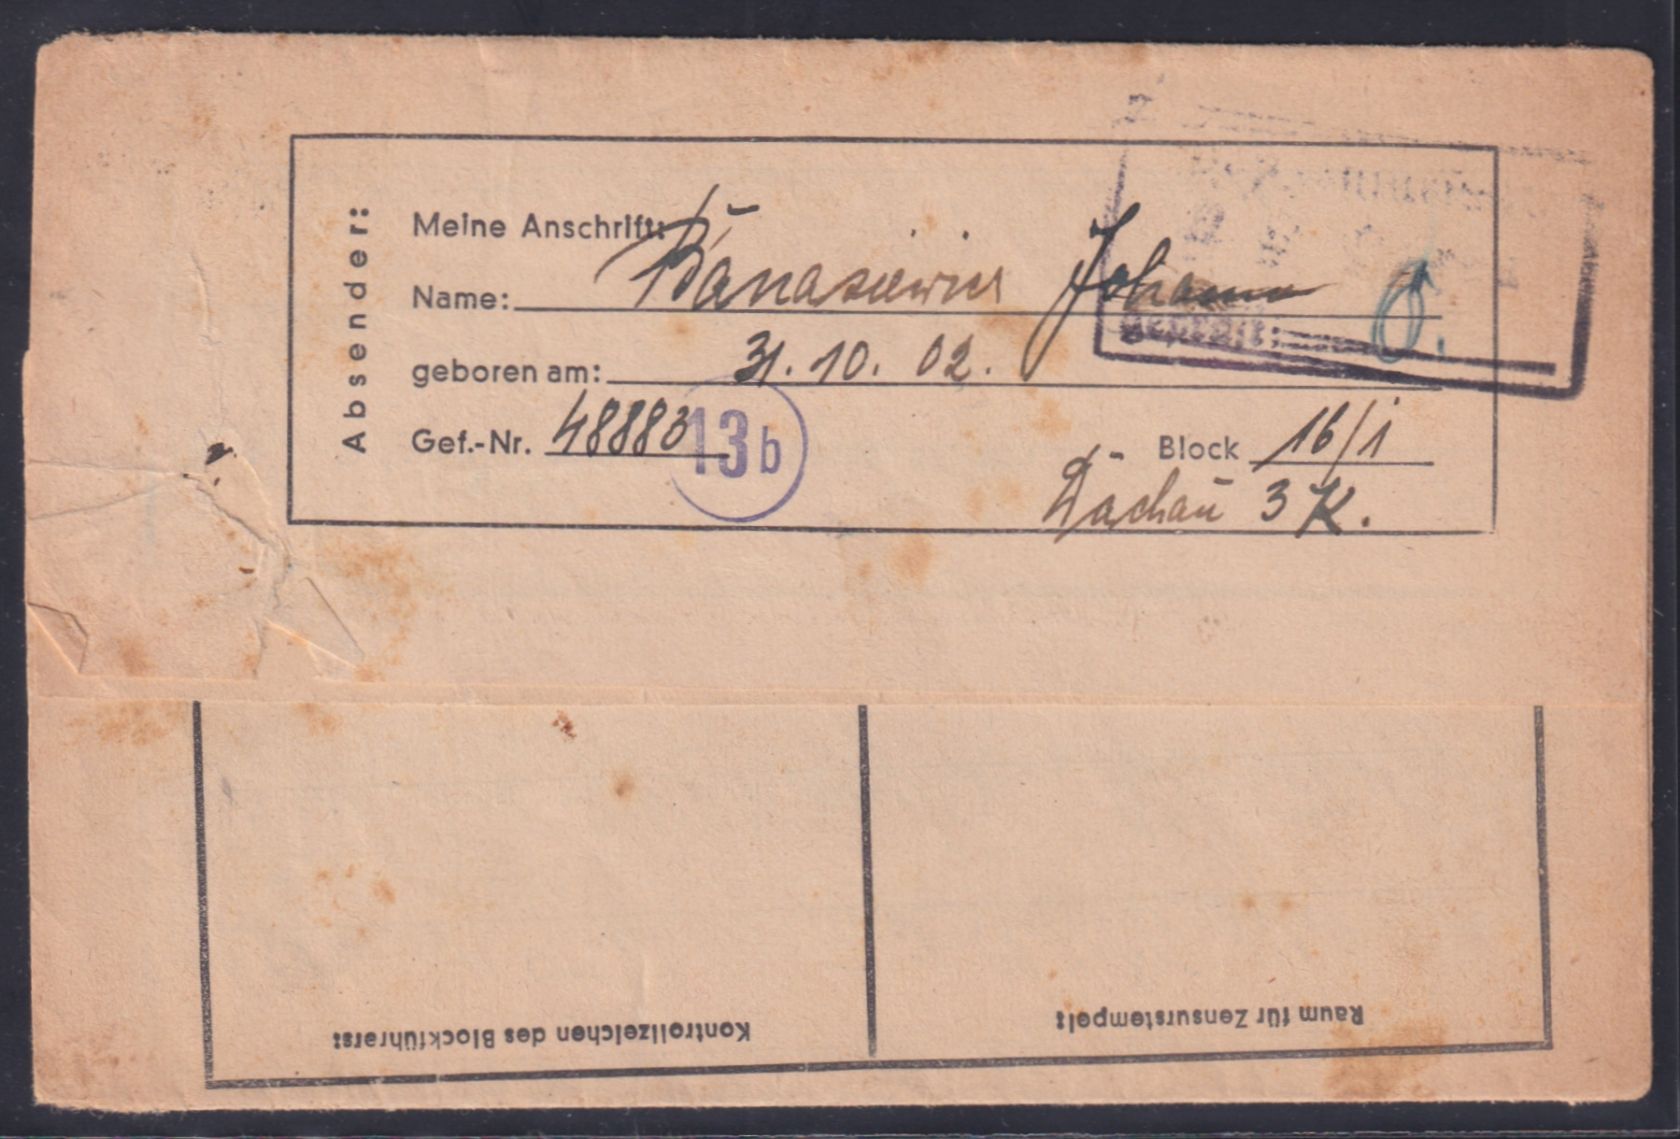 Absender:
Meine Anschrift:
Name: Banasiewicz Johann
geboren am: 31. 10. 02.
Gef.-Nr. 48883
13b
Block 16/1
Dachau 3 K.
geprüft:
Kontrollzeichen des Blockführers:
Raum für Zensurstempel: